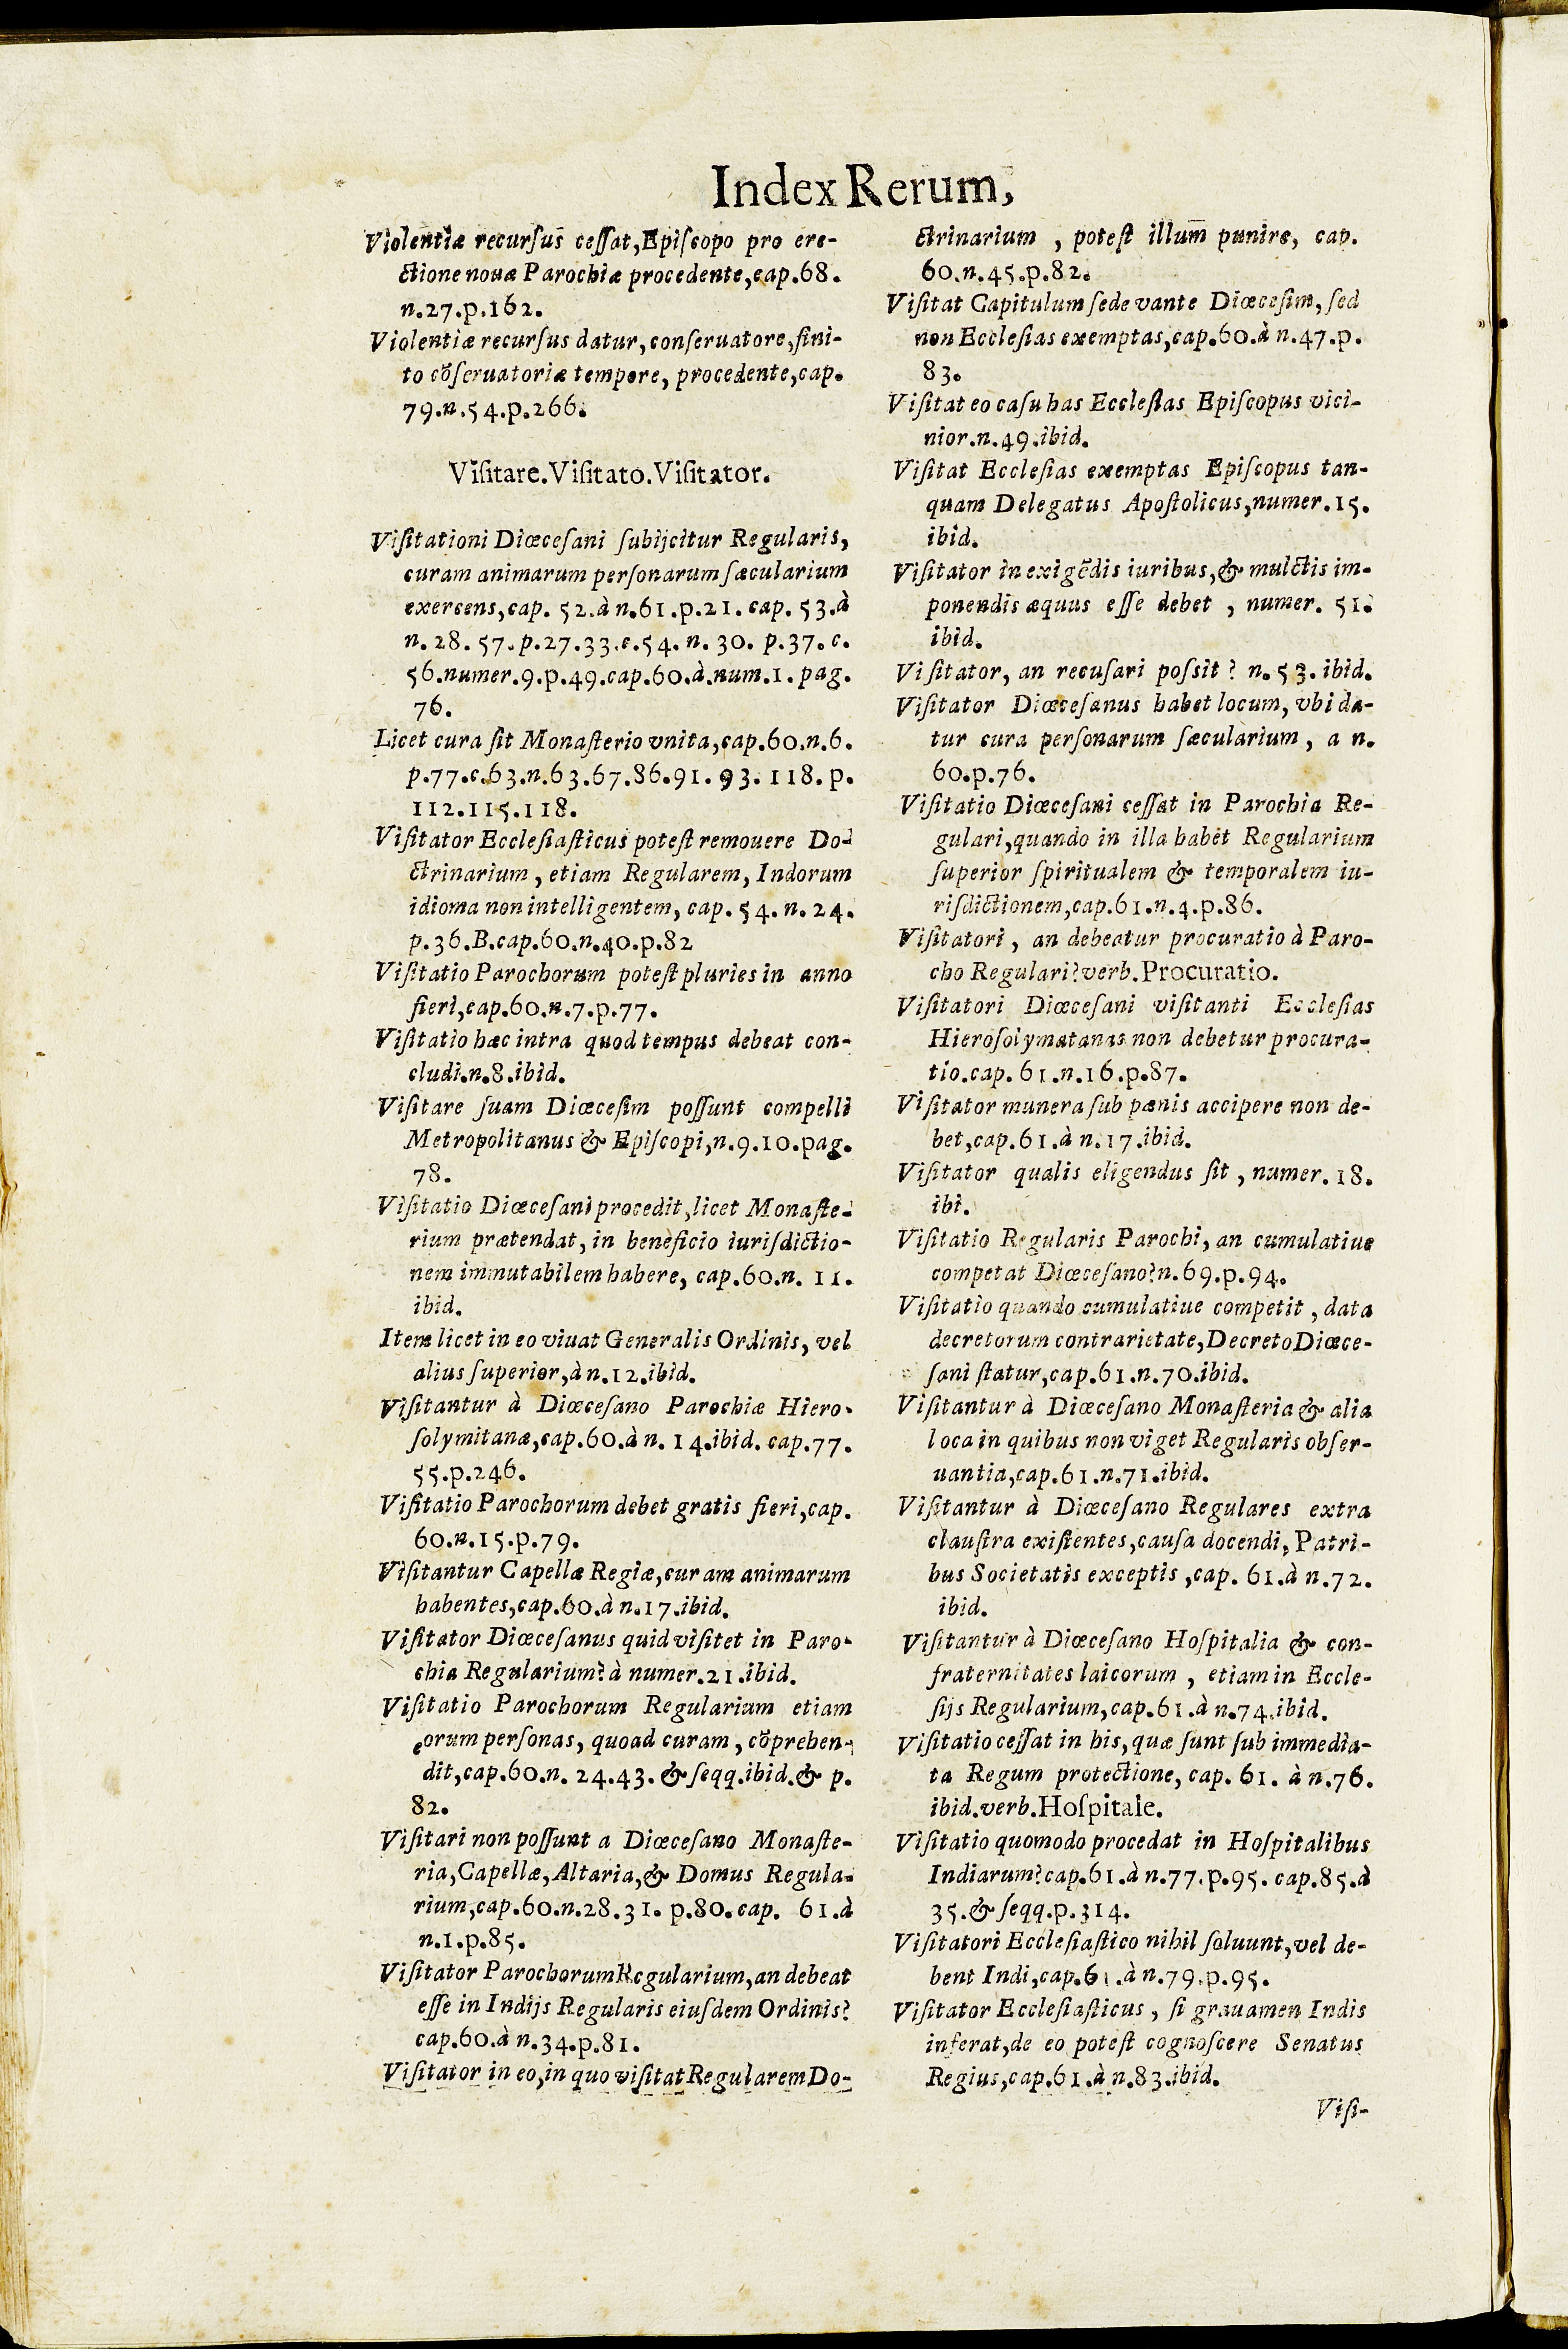 Index Rerum,
Violentiæ recursus cessat, Episcopo pro ere-
ctione nouæ Parochiæ procedente, cap. 68.
n. 27. p. 162.
Violentiæ recursus datur, conseruatore, fini-
to cõseruatoriæ tempore, procedente, cap.
79. n. 54. p. 266.
Visitare. Visitato. Visitator.
Visitationi Diœcesani subijcitur Regularis,
curam animarum personarum sæcularium
exercens, cap. 52. à n. 61. p. 21. cap. 53. à
n. 28. 57. p. 27. 33. c. 54. n. 30. p. 37. c.
56. numer. 9. p. 49. cap. 60. à. num. 1. pag.
76.
Licet cura sit Monasterio vnita, cap. 60. n. 6.
p. 77. c. 63. n. 63. 67. 86. 91. 93. 118. p.
112. 115. 118.
Visitator Ecclesiasticus potest remouere Do-
ctrinarium, etiam Regularem, Indorum
idioma non intelligentem, cap. 54. n. 24.
p. 36. B. cap. 60. n. 40. p. 82
Visitatio Parochorum potest pluries in anno
fieri, cap. 60. n. 7. p. 77.
Visitatio hæc intra quod tempus debeat con-
cludi. n. 8. ibid.
Visitare suam Diœcesim possunt compelli
Metropolitanus & Episcopi, n. 9. 10. pag.
78.
Visitatio Diœcesani procedit, licet Monaste-
rium prætendat, in beneficio iurisdictio-
nem immutabilem habere, cap. 60. n. 11.
ibid.
Item licet in eo viuat Generalis Ordinis, vel
alius superior, à n. 12. ibid.
Visitantur à Diœcesano Parochiæ Hiero-
solymitanæ, cap. 60. à n. 14. ibid. cap. 77.
55. p. 246.
Visitatio Parochorum debet gratis fieri, cap.
60. n. 15. p. 79.
Visitantur Capellæ Regiæ, curam animarum
habentes, cap. 60. à n. 17. ibid.
Visitator Diœcesanus quid visitet in Paro-
chia Regularium? à numer. 21. ibid.
Visitatio Parochorum Regularium etiam
eorum personas, quoad curam, cõprehen-
dit, cap. 60. n. 24. 43. & seqq. ibid. & p.
82.
Visitari non possunt a Diœcesano Monaste-
ria, Capellæ, Altaria, & Domus Regula-
rium, cap. 60. n. 28. 31. p. 80. cap. 61. à
n. 1. p. 85.
Visitator Parochorum Regularium, an debeat
esse in Indijs Regularis eiusdem Ordinis?
cap. 60. à n. 34. p. 81.
Visitator in eo, in quo visitat Regularem Do-
ctrinarium, potest illum punire, cap.
60. n. 45. p. 82.
Visitat Capitulum sede vante Diœcesim, sed
non Ecclesias exemptas, cap. 60. à n. 47. p.
83.
Visitat eo casu has Ecclesias Episcopus vici-
nior. n. 49. ibid.
Visitat Ecclesias exemptas Episcopus tan-
quam Delegatus Apostolicus, numer. 15.
ibid.
Visitator in exigẽdis iuribus, & mulctis im-
ponendis æquus esse debet, numer. 51.
ibid.
Visitator, an recusari possit? n. 53. ibid.
Visitator Diœcesanus habet locum, vbi da-
tur cura personarum sæcularium, a n.
60. p. 76.
Visitatio Diœcesani cessat in Parochia Re-
gulari, quando in illa habet Regularium
superior spiritualem & temporalem iu-
risdictionem, cap. 61. n. 4. p. 86.
Visitatori, an debeatur procuratio à Paro-
cho Regulari? verb. Procuratio.
Visitatori Diœcesani visitanti Ecclesias
Hierosolymatanas non debetur procura-
tio. cap. 61. n. 16. p. 87.
Visitator munera sub pænis accipere non de-
bet, cap. 61. à n. 17. ibid.
Visitator qualis eligendus sit, numer. 18.
ibi.
Visitatio Regularis Parochi, an cumulatiue
competat Diœcesano? n. 69. p. 94.
Visitatio quando cumulatiue competit, data
decretorum contrarietate, Decreto Diœce-
sani statur, cap. 61. n. 70. ibid.
Visitantur à Diœcesano Monasteria & alia
loca in quibus non viget Regularis obser-
uantia, cap. 61. n. 71. ibid.
Visitantur à Diœcesano Regulares extra
claustra existentes, causa docendi, Patri-
bus Societatis exceptis, cap. 61. à n. 72.
ibid.
Visitantur à Diœcesano Hospitalia & con-
fraternitates laicorum, etiam in Eccle-
sijs Regularium, cap. 61. à n. 74. ibid.
Visitatio cessat in his, quæ sunt sub immedia-
ta Regum protectione, cap. 61. à n. 76.
ibid. verb. Hospitale.
Visitatio quomodo procedat in Hospitalibus
Indiarum? cap. 61. à n. 77. p. 95. cap. 85. à
35. & seqq. p. 314.
Visitatori Ecclesiastico nihil soluunt, vel de-
bent Indi, cap. 61. à n. 79. p. 95.
Visitator Ecclesiasticus, si grauamen Indis
inferat, de eo potest cognoscere Senatus
Regius, cap. 61. à n. 83. ibid.
Visi-